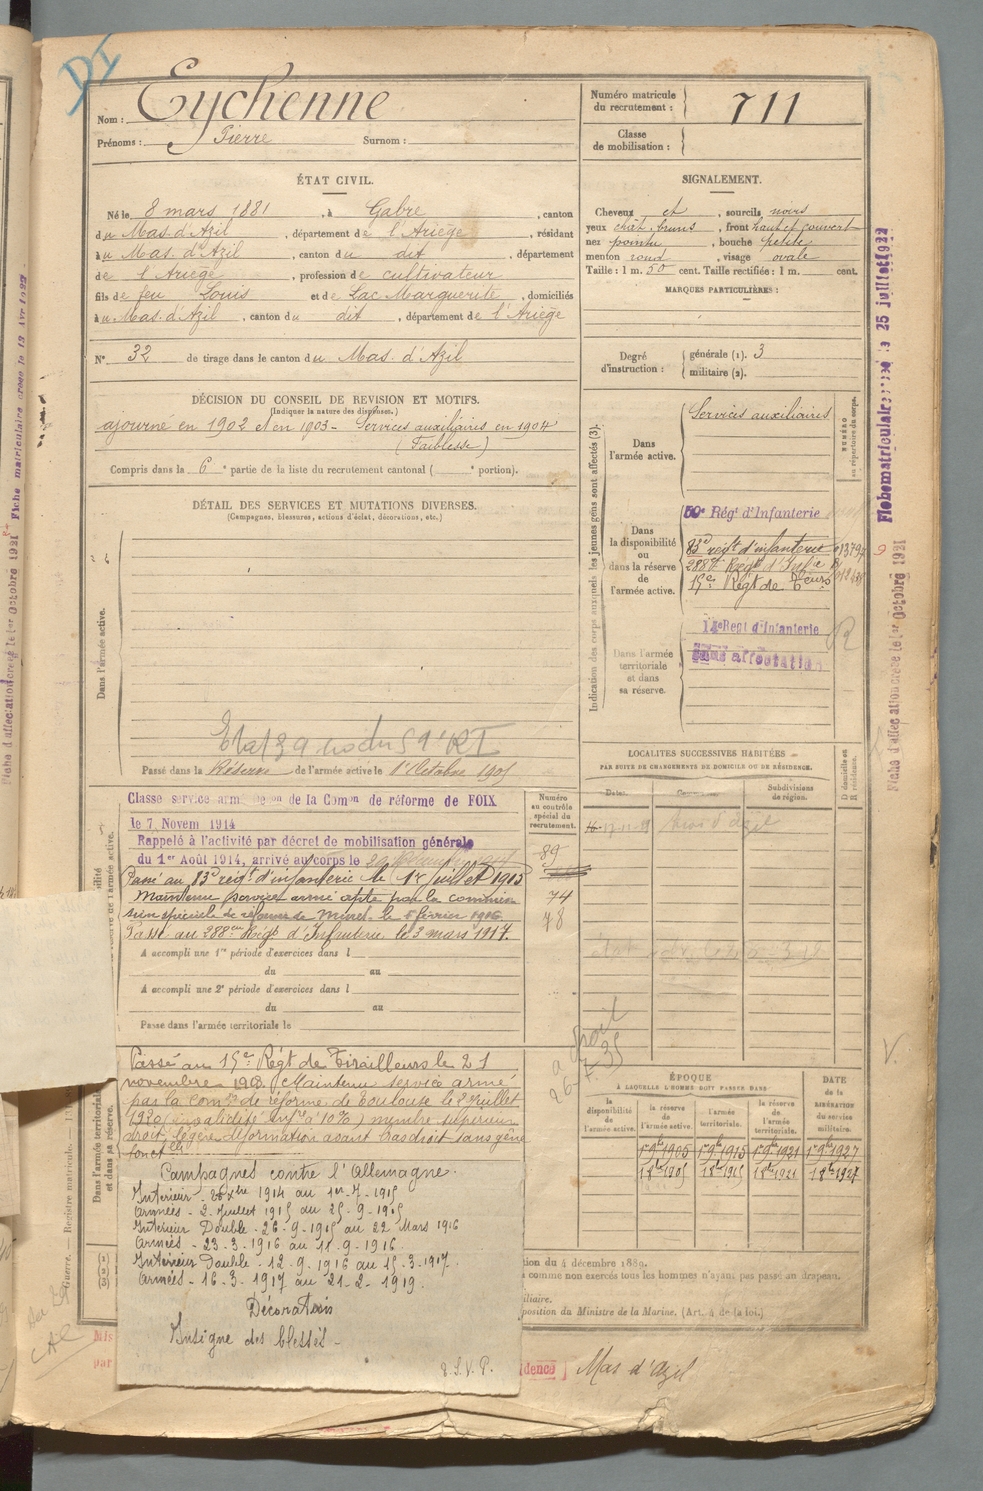 DI
Nom : Eychenne
Prénoms : Pierre Surnom :
Numéro matricule du recrutement : 711
Classe de mobilisation :
ÉTAT CIVIL.
Né le 8 mars 1881, à Gabre, canton
du Mas. d'Azil, département de l'Ariège, résidant
à u Mas. d'Azil, canton du dit, département
de l'Ariège, profession de cultivateur
fils de feu Louis et de Lac Marguerite, domiciliés
à u Mas. d'Azil, canton du dit, département de l'Ariège
N° 32 de tirage dans le canton du Mas. d'Azil
SIGNALEMENT.
Cheveux et, sourcils noirs
yeux chât. bruns, front haut et couvert
nez pointu, bouche petite
menton rond, visage ovale
Taille : 1 m. 50 cent. Taille rectifiée : 1 m. cent.
MARQUES PARTICULIÈRES :
Degré d'instruction : générale (1). 3
militaire (2).
DÉCISION DU CONSEIL DE REVISION ET MOTIFS.
(Indiquer la nature des dispenses.)
ajourné en 1902 et en 1903 - Services auxiliaires en 1904
(Faiblesse)
Compris dans la 6e partie de la liste du recrutement cantonal ( e portion).
DÉTAIL DES SERVICES ET MUTATIONS DIVERSES.
(Campagnes, blessures, actions d'éclat, décorations, etc.)
Dans l'armée active.
Passé dans la Réserve de l'armée active le 1er Octobre 1905
Indication des corps auxquels les jeunes gens sont affectés (3).
NUMÉRO au répertoire du corps.
Dans l'armée active.
Services auxiliaires
Dans la disponibilité ou dans la réserve de l'armée active.
59e Régt d'Infanterie
83e régt d'infanterie
288e Régt d'Infie
15e Régt de Teurs
Dans l'armée territoriale et dans sa réserve.
Régt d'Infanterie
affectation
R
LOCALITÉS SUCCESSIVES HABITÉES
PAR SUITE DE CHANGEMENTS DE DOMICILE OU DE RÉSIDENCE.
Dates. Communes. Subdivisions de région. D domicile ou R résidence.
Classe service armé Don de la Comon de réforme de FOIX
le 7 Novem 1914
Rappelé à l'activité par décret de mobilisation générale
du 1er Août 1914, arrivé au corps le
Passé au 83e régt d'infanterie le 1er Juillet 1915
Maintenu service armé apte par la commis
sion spéciale de réforme de Muret le 5 février 1916
Passé au 288eme Régt d'Infanterie le 3 mars 1917.
Numéro au contrôle spécial du recrutement.
89
74
78
A accompli une 1re période d'exercices dans l
du au
A accompli une 2e période d'exercices dans l
du au
Passé dans l'armée territoriale le
Passé au 15e Régt de Tirailleurs le 21
novembre 1918. Maintenu service armé
par la Comon de réforme de Toulouse le 2 Juillet
1920 (invalidité infre à 10%) membre supérieur
droit, légère déformation avant bras droit sans gêne
fonctelle
Campagnes contre l'Allemagne.
Intérieur - 1914 au 1er-7-1915
Armées - 2 Juillet 1915 au 25-9-1915
Intérieur Double - 26-9-1915 au 22 Mars 1916
Armées - 23-3-1916 au 11-9-1916.
Intérieur Double - 12-9-1916 au 15-3-1917.
Armées - 16-3-1917 au 21-2-1919.
Décoration
Insigne des blessés -
T.S.V.P.
ÉPOQUE
À LAQUELLE L'HOMME DOIT PASSER DANS
DATE de la LIBÉRATION du service militaire.
la disponibilité de l'armée active. la réserve de l'armée active. l'armée territoriale. la réserve de l'armée territoriale.
1 9bre 1905 1 9bre 1915 1 9bre 1921 1 9bre 1927
1 8bre 1905 1 8bre 1915 1 8bre 1921 1 8bre 1927
tion du 4 décembre 1889.
comme non exercés tous les hommes n'ayant pas passé au drapeau.
iliaire.
position du Ministre de la Marine. (Art. 4 de la loi.)
idence Mas d'Azil
Fiche matriculaire 25 juillet 1922
Fiche d'affectation créée le 1er Octobre 1921